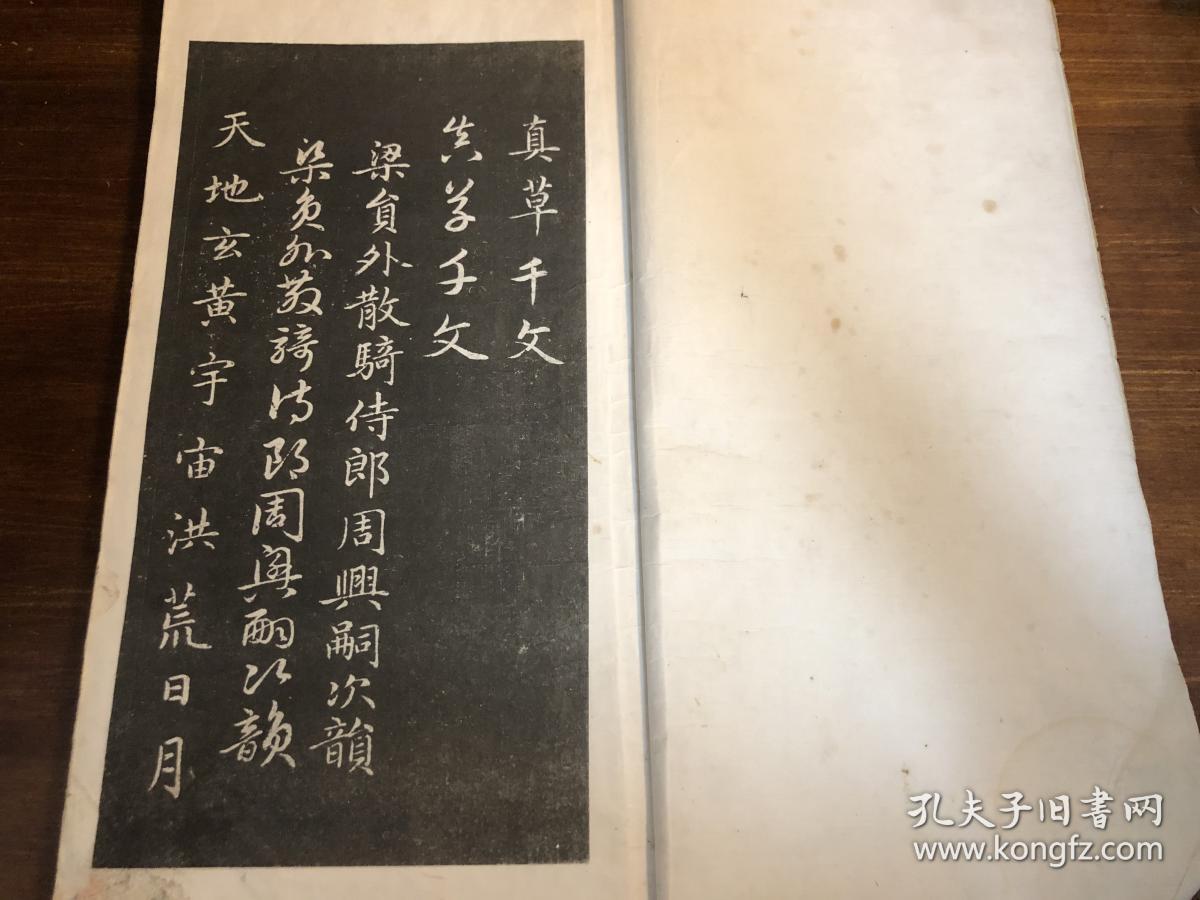 真草千文
真草千文
梁貟外散騎侍郎周興嗣次韻
梁貟外散騎侍郎周興嗣次韻
天地玄黃宇宙洪荒日月
孔夫子旧書网
www.kongfz.com